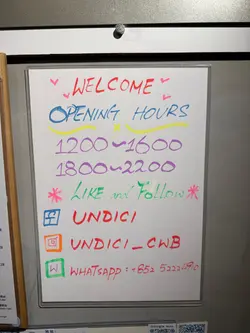 WELCOME
OPENING HOURS
1200~1600
1800~2200
LIKE and FOLLOW
UNDICI
UNDICI_CWB
WHATSAPP: +852